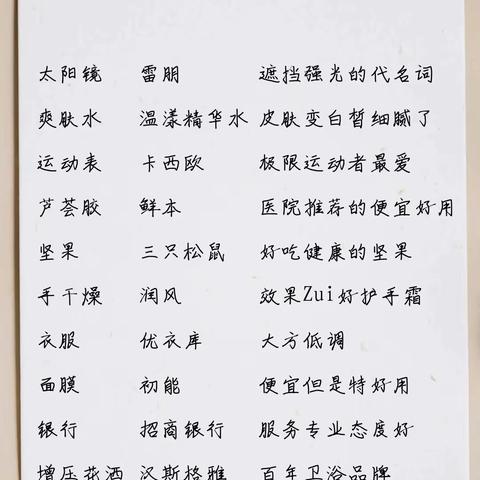 太阳镜 雷朋 遮挡强光的代名词
爽肤水 温漾精华水 皮肤变白皙细腻了
运动表 卡西欧 极限运动者最爱
芦荟胶 鲜本 医院推荐的便宜好用
坚果 三只松鼠 好吃健康的坚果
手干燥 润风 效果Zui好护手霜
衣服 优衣库 大方低调
面膜 初能 便宜但是特好用
银行 招商银行 服务专业态度好
增压花洒 汉斯格雅 百年卫浴品牌